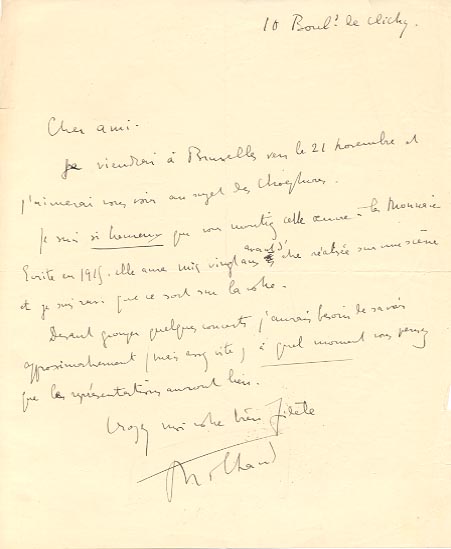 10 Boul.d de Clichy.
Cher ami.
Je viendrai à Bruxelles vers le 21 novembre et
j'aimerai vous voir au sujet des Choéphores.
Je suis si heureux que vous montiez cette œuvre à la Monnaie
Ecrite en 1915. elle aura mis vingt ans avant d'être réalisée sur une scène
et je suis ravi que ce soit sur la vôtre.
Devant grouper quelques concerts j'aurais besoin de savoir
approximativement (mais assez vite) à quel moment vous pensez
que les représentations auront lieu.
Croyez moi votre bien fidèle
Milhaud